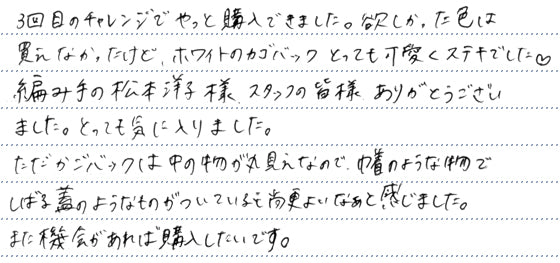 3回目のチャレンジでやっと購入できました。欲しかった色は
買えなかったけど、ホワイトのカゴバック とっても可愛くステキでした♡
編み手の松本洋子様、スタッフの皆様 ありがとうござい
ました。とっても気に入りました。
ただかごバックは中の物が丸見えなので、巾着のような物で
しばる蓋のようなものがついていると尚更よいなぁと感じました。
また機会があれば購入したいです。